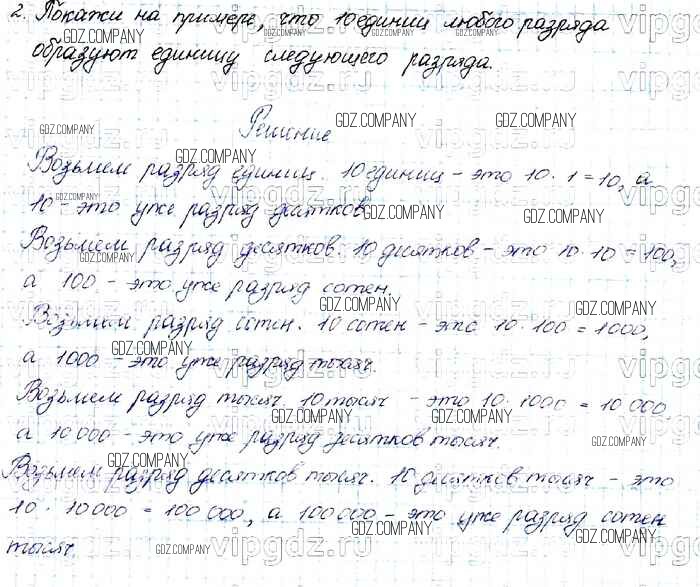 2. Покажи на примере, что 10 единиц любого разряда
образуют единицу следующего разряда.
Решение
Возьмем разряд единиц. 10 единиц - это 10 · 1 = 10, а
10 - это уже разряд десятков.
Возьмем разряд десятков. 10 десятков - это 10 · 10 = 100,
а 100 - это уже разряд сотен.
Возьмем разряд сотен. 10 сотен - это 10 · 100 = 1000,
а 1000 - это уже разряд тысяч.
Возьмем разряд тысяч. 10 тысяч - это 10 · 1000 = 10 000,
а 10 000 - это уже разряд десятков тысяч.
Возьмем разряд десятков тысяч. 10 десятков тысяч - это
10 · 10 000 = 100 000, а 100 000 - это уже разряд сотен
тысяч.
GDZ.COMPANY
vipgdz.ru